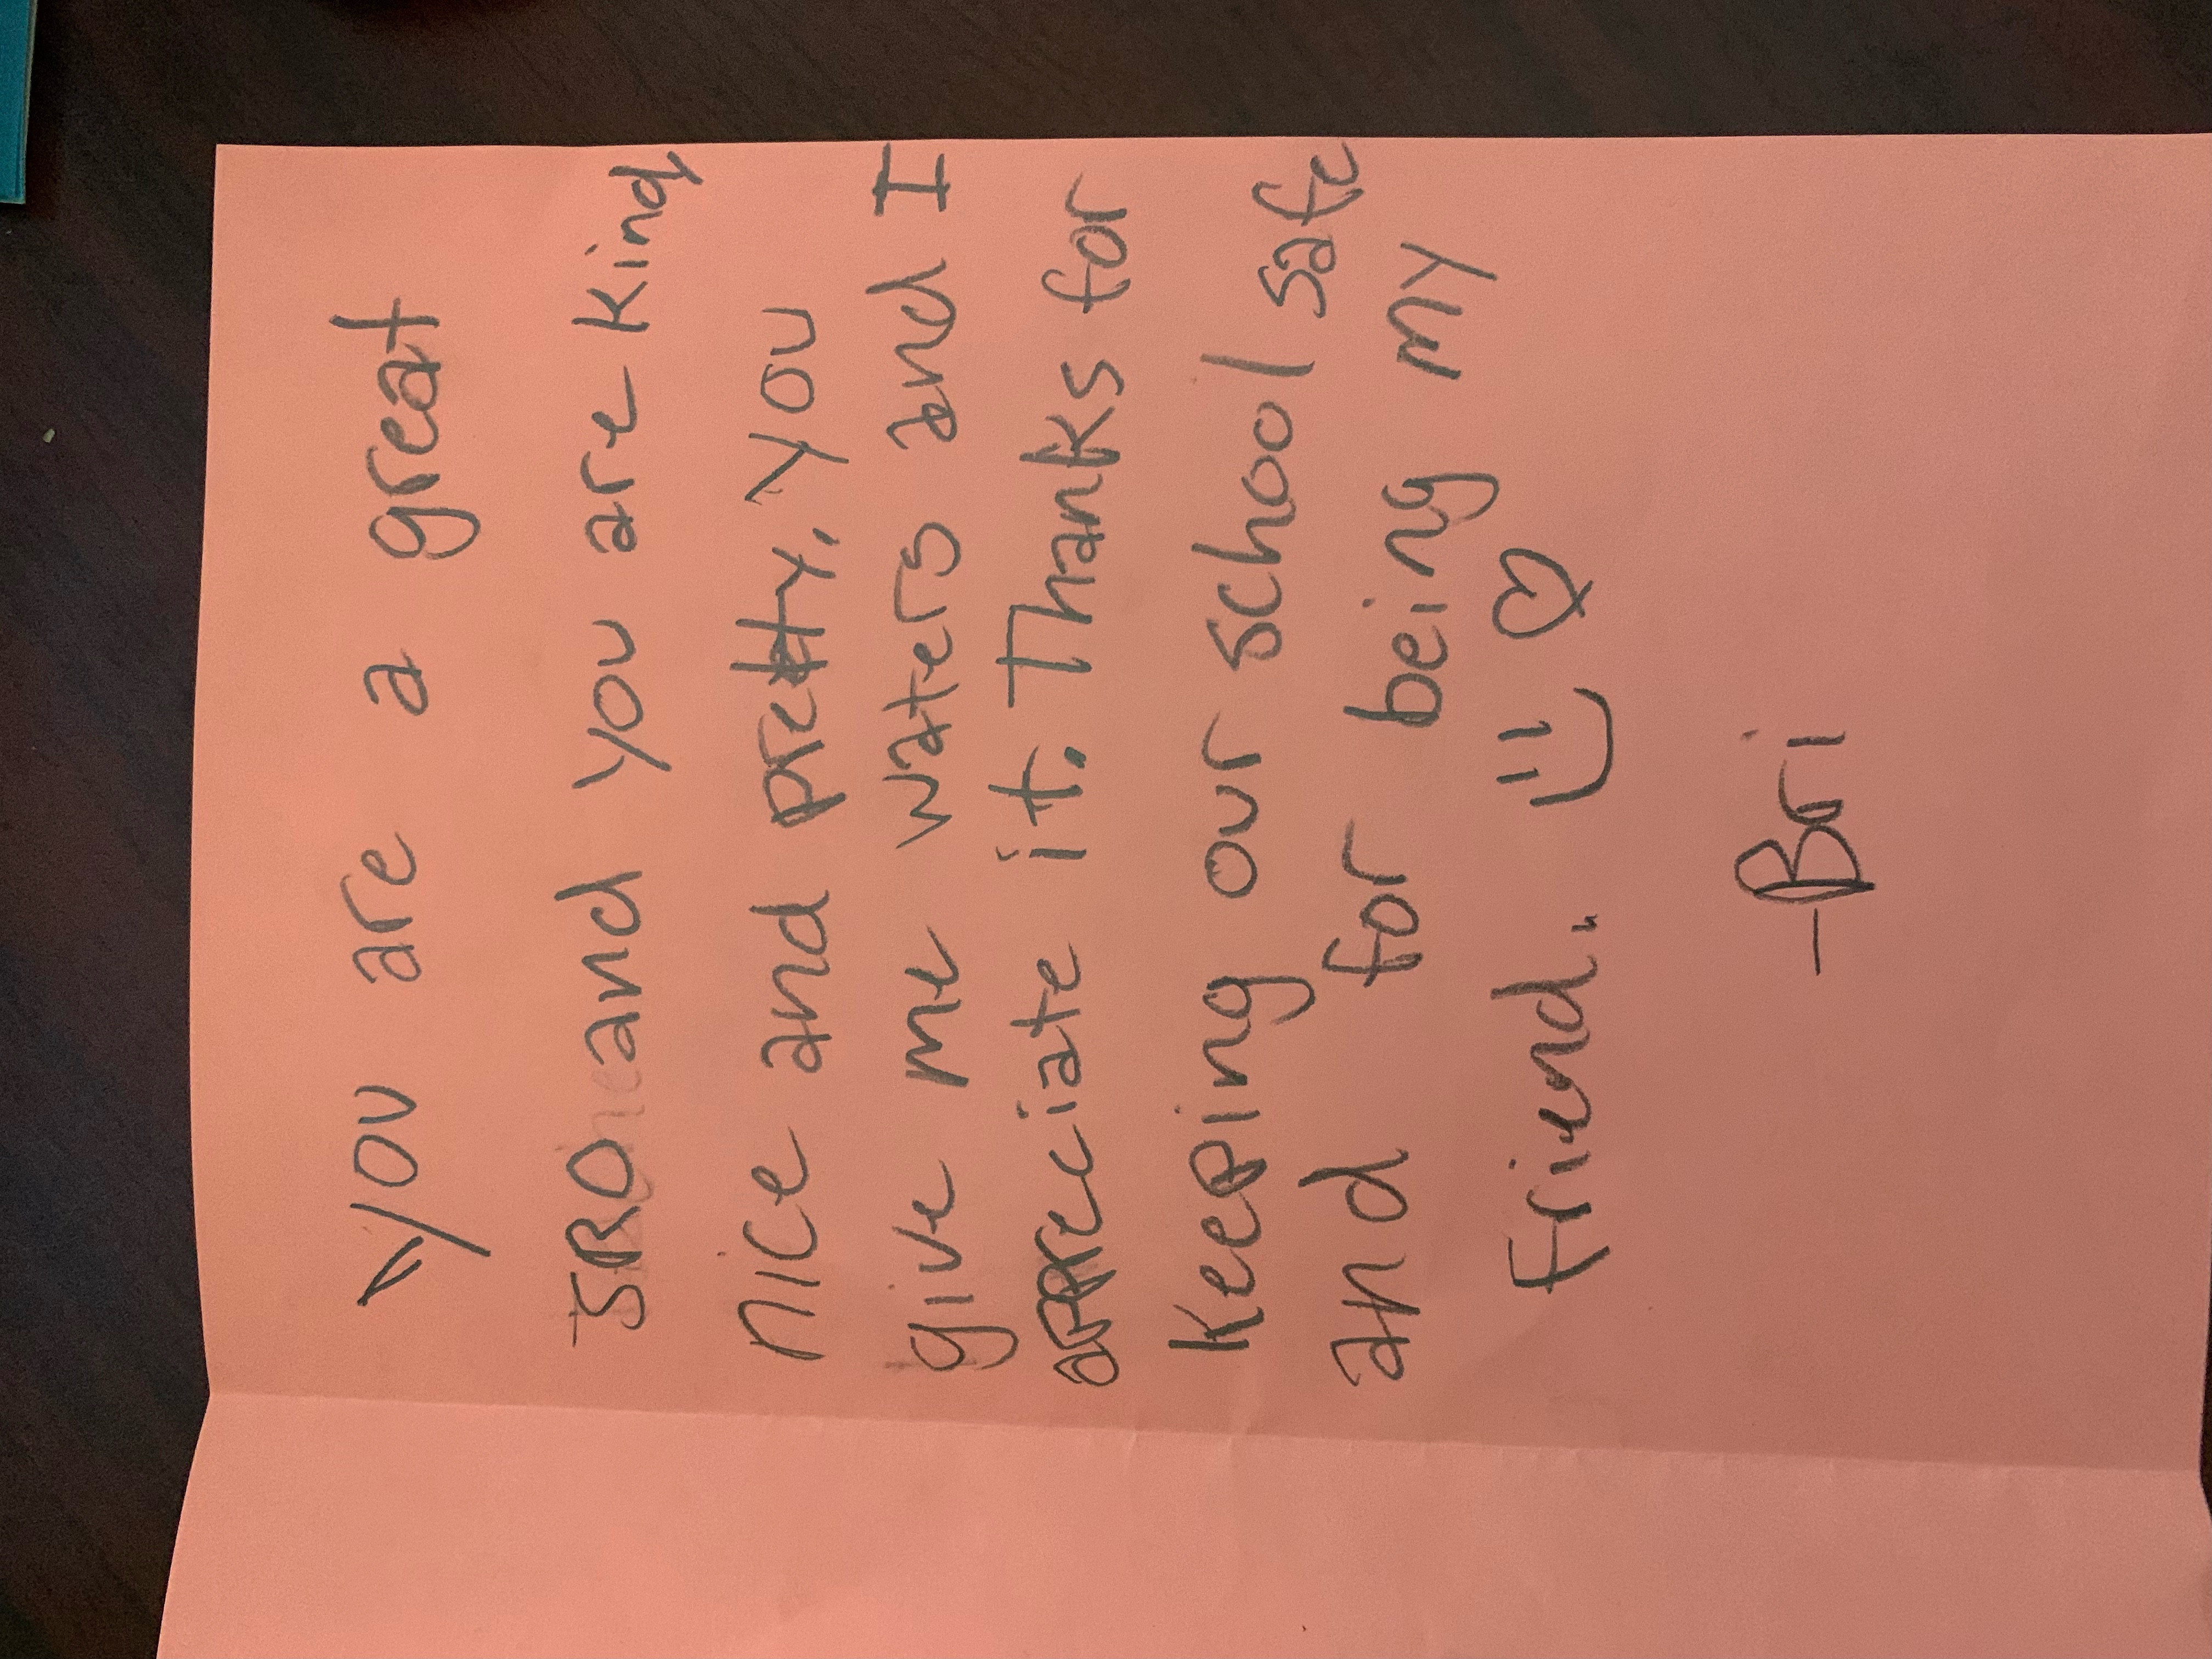 you are a great
SRO and you are kind
nice and pretty, you
give me waters and I
appreciate it. Thanks for
Keeping our school safe
and for being my
friend. :) ♡
-Bri